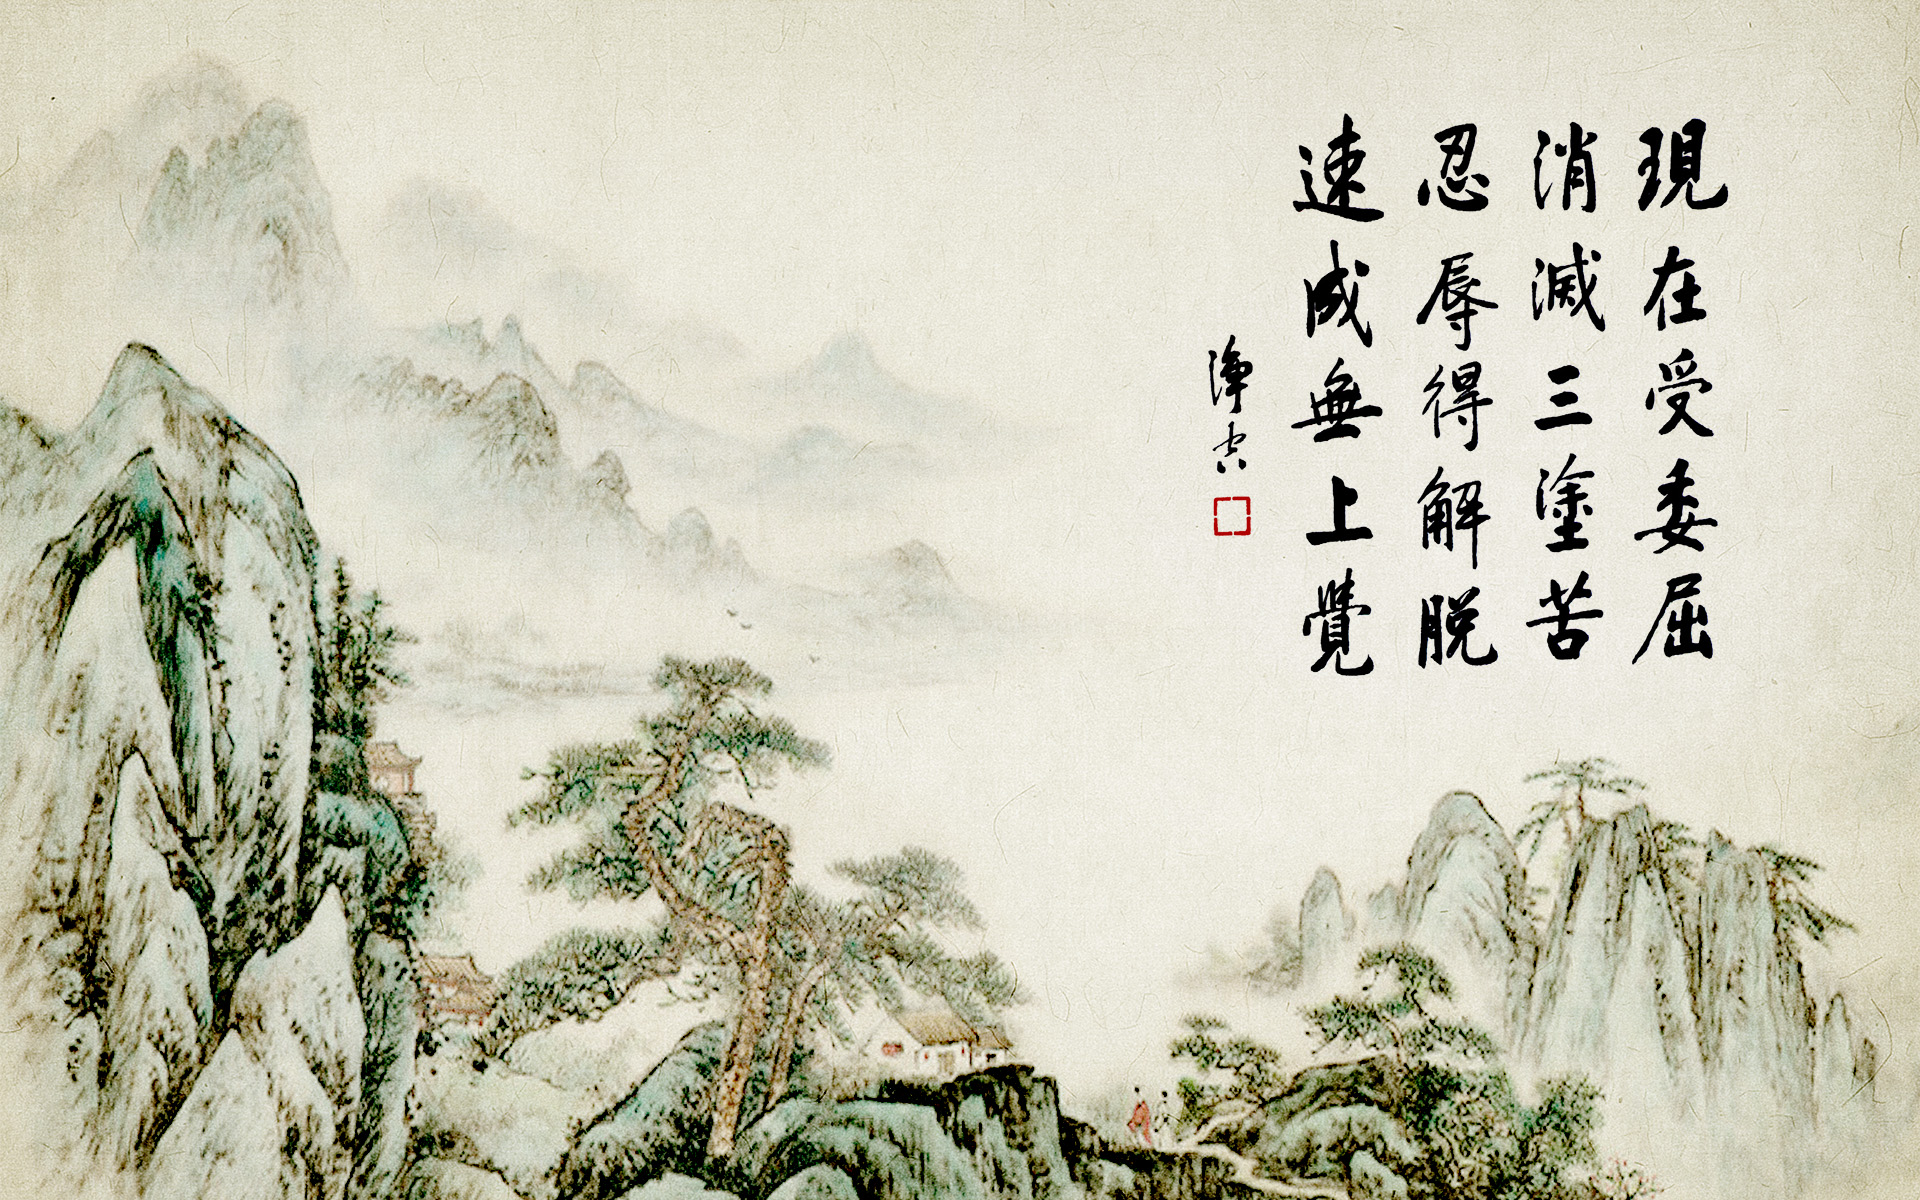 現在受委屈
消滅三塗苦
忍辱得解脱
速成無上覺
淨空